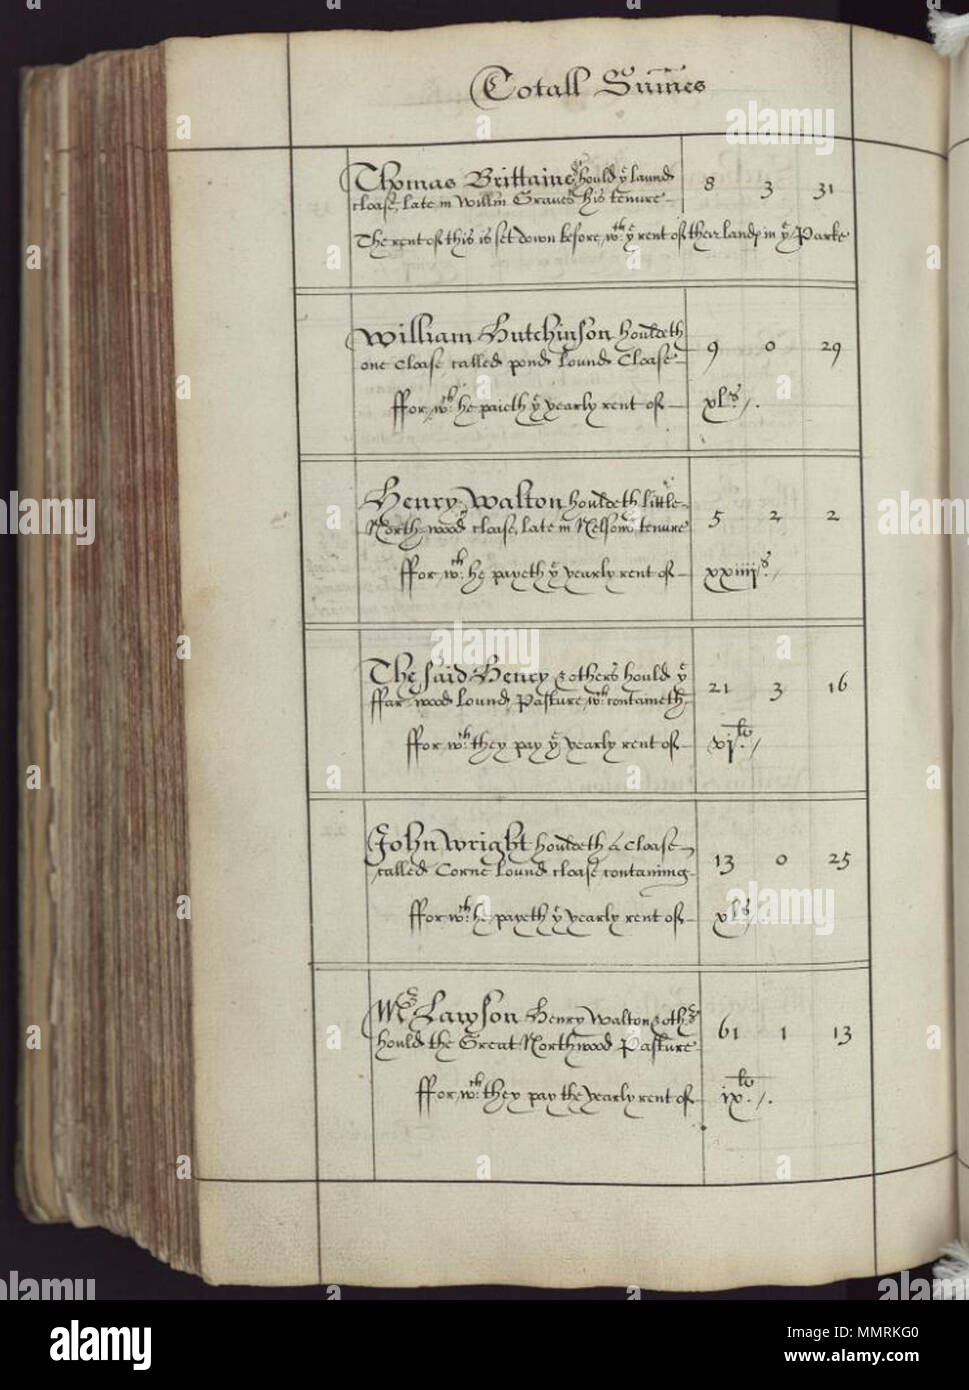 Totall Summes
Thomas Brittaine hould yͤ laund 8 3 31
cloase, late in Willm Graues his tenure
The rent of this is set down before, wth. yͤ rent of their land in yͤ Parke
William Hutchinson houldeth
one Cloase called pond lound Cloase 9 0 29
ffor wch. he paieth yͤ yearly rent of xls.
Henry Walton houldeth little
North-wood cloase, late in Nelsons tenure 5 2 2
ffor wch. he payeth yͤ yearly rent of xxiiijs.
The said Henry & others hould yͤ
ffar-wood lound Pasture, wch. containeth 21 3 16
ffor wch. they pay yͤ yearly rent of vjli.
John Wright houldeth a Cloase
called Corne lound cloase contaning 13 0 25
ffor wch. he payeth yͤ yearly rent of xls
Mr Lawson Henry Walton & othrs
hould the Great Northwood Pasture 61 1 13
ffor wch. they pay the yearly rent of ixli.
alamy
Image ID: MMRKG0
www.alamy.com